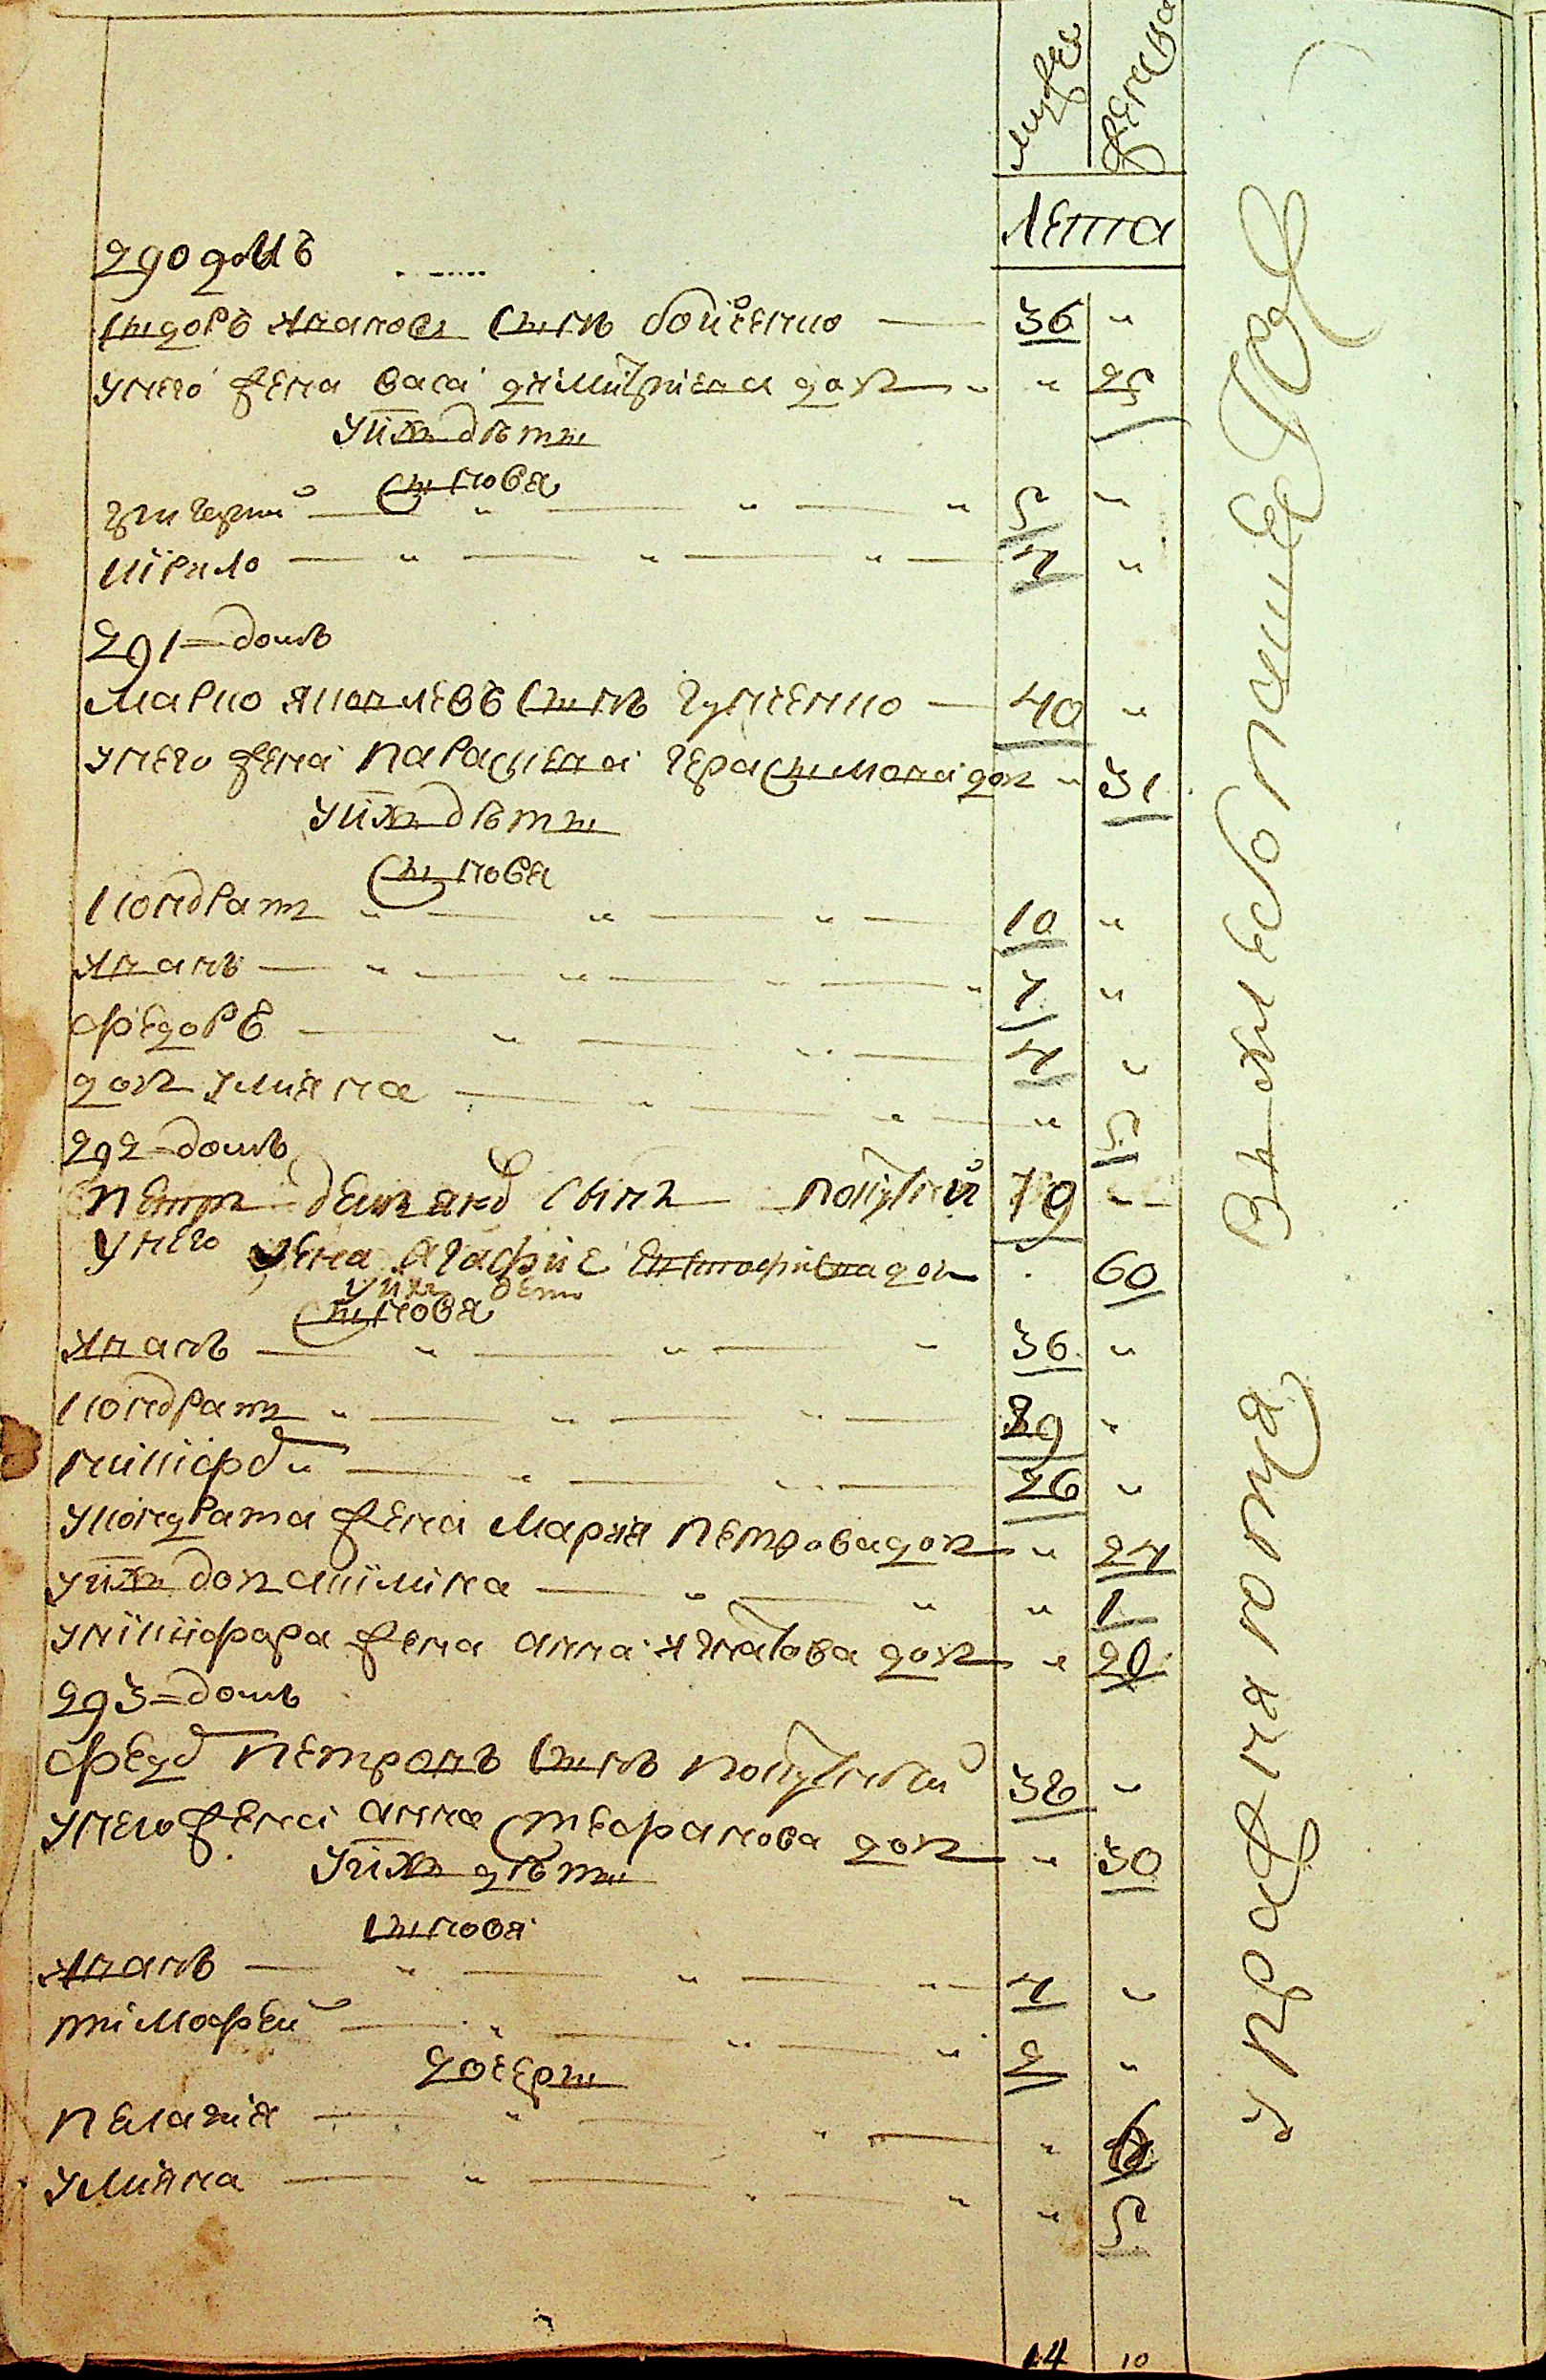 мужеска женска
лета
290 домъ
Сидоръ Ивановъ сынъ Бойченко 36 "
у него жена Васа Димитриева доч " 25
у них дѣти
синовя
Григорий 5 "
Кирило 4 "
291 = домъ
Марко Яковлевъ синъ Гунченко 40 "
у него жена Параскева Герасимова доч " 31
у них дѣти
синовя
Кондратъ 10 "
Иванъ 7 "
Федоръ 4 "
доч Улияна " 5
292 = домъ
Петръ сынъ 79
у него жена Агафиє доч 60
у них дети
синовя
Иванъ 36 "
Кондратъ 29 "
Никифор 26 "
у Кондрата жена Мария Петрова доч " 24
у них доч Акилина " 1
у Никифора жена Анна Игнатова доч " 20
293 = домъ
Федор Петровъ синъ 32 "
у него жена Анна Стефанова доч " 30
у них дѣти
синовя
Иванъ 4 "
Тимофей 2 "
дочери
Пелагия " 6
Улияна " 5
14 10